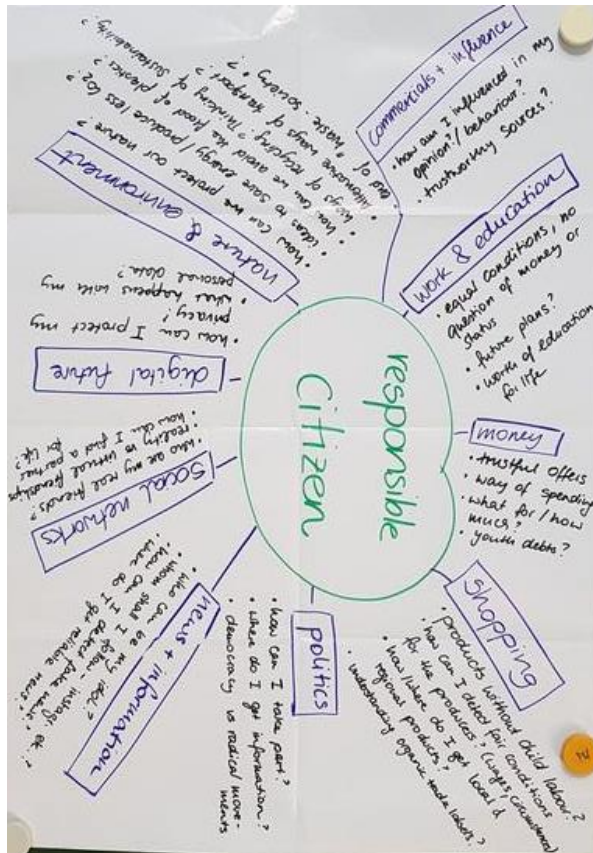 responsible
citizen
commercials + influence
• how am I influenced in my
opinion?/behaviour?
• trustworthy sources?
work & education
• equal conditions, no
question of money or
status
• future plans?
• worth of education
for life
money
• trustful offers
• way of spending
• what for / how
much?
• youth debts?
shopping
• products without child labour?
• how can I detect fair conditions
for the producers? (wages, circumstances)
• how/where do I get local &
regional products?
• understanding organic trade labels?
politics
• how can I take part?
• where do I get information?
• democracy vs radical move-
ments
news + information
• who can be my idol?
• whom shall I follow - instagr. etc.?
• how can I detect fake news?
• where do I get reliable news?
social networks
• who are my real friends?
• reality vs virtual friendships
• how can I find a partner
for life?
digital future
• how can I protect my
privacy?
• what happens with my
personal data?
nature & environment
• how can we protect our nature?
• ideas to save energy / produce less CO2?
• how can we avoid the flood of plastics?
• ways of recycling? Thinking of sustainability
• alternative ways of transport?
• end of "waste" society?